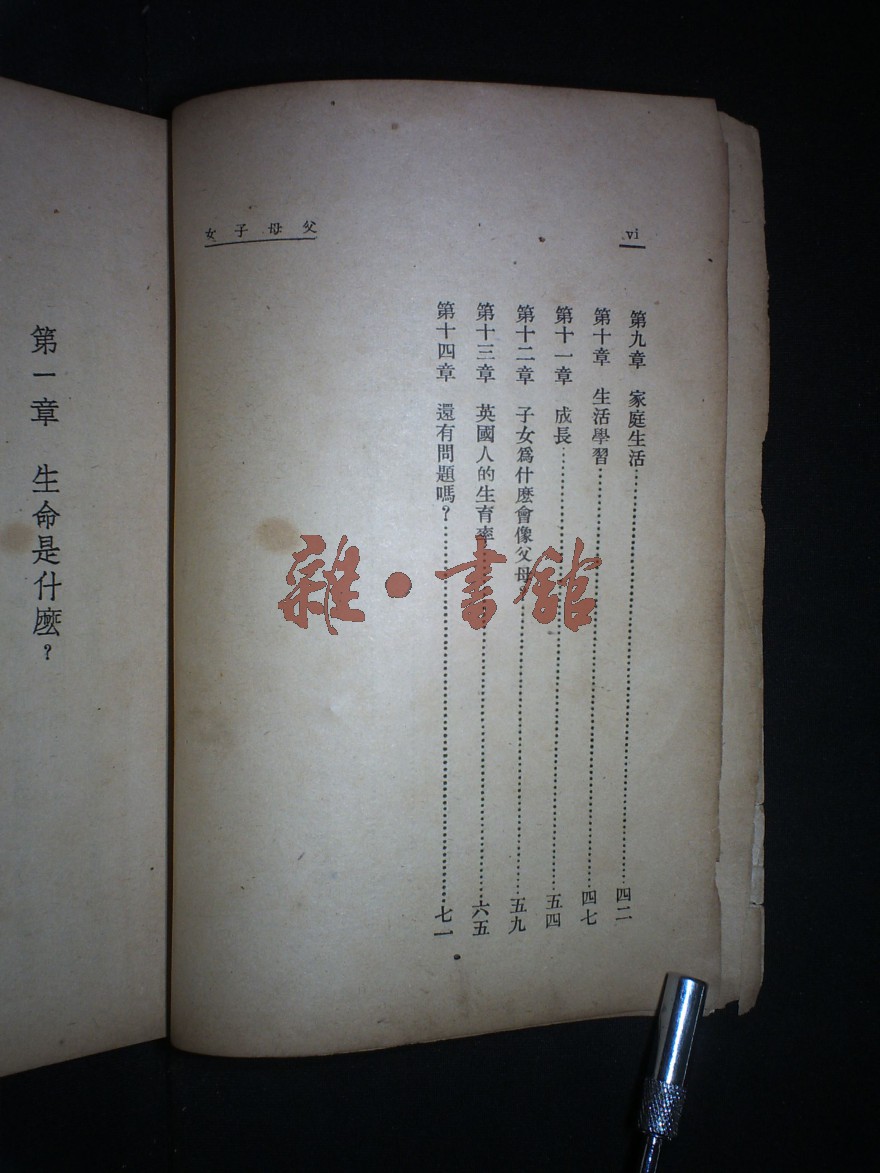 vi
父母子女
第九章 家庭生活……四二
第十章 生活學習……四七
第十一章 成長……五四
第十二章 子女爲什麽會像父母……五九
第十三章 英國人的生育率……六五
第十四章 還有問題嗎？……七一
第一章 生命是什麽？
雜·書館